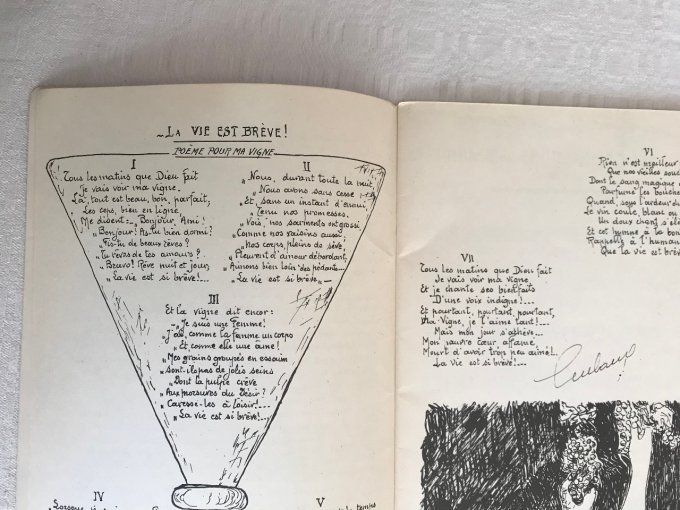 LA VIE EST BRÈVE!
POÈME POUR MA VIGNE
I
Tous les matins que Dieu fait
Je vais voir ma vigne.
Là, tout est beau, bon, parfait,
Les ceps, bien en ligne,
Me disent: „ Bonjour, Ami!
„ Bonjour! As-tu bien dormi?
„ Fis-tu de beaux rêves?
„ Tu rêves de tes amours?
„ Bravo! Rêve nuit et jour,
„ La vie est si brève!...
II
„ Nous, durant toute la nuit,
„ Nous avons sans cesse
„ Et, sans un instant d'ennui,
„ Tenu nos promesses,
„ Vois, nos sarments ont grossi
„ Comme nos raisins aussi,
„ Nos corps pleins de sève,
„ Pleurent d'amour débordant,
„ Aimons bien loin des pédants...
„ La vie est si brève
III
Et la vigne dit encor:
„ Je suis une femme,
J'ai, comme la femme un corps
„ Et comme elle une âme!
„ Mes grains groupés en essaim
„ Sont-ils pas de jolis seins
„ Dont la pulpe crève
„ Aux morsures du Désir?
„ Caresse-les à loisir!...
„ La vie est si brève!...
IV
Lorsque
V
temps
VI
Rien n'est meilleur
Que nos vieilles
Dont le sang magique
Parfume les
Quand, sous l'ardeur
Le vin coule, blanc ou
Un doux chant s'
Et cet hymne à la bon
Rappelle à l'humani
Que la vie est brè
VII
Tous les matins que Dieu fait
Je vais voir ma vigne
Et je chante ses bienfaits
D'une voix indigne!...
Et pourtant, pourtant, pourtant,
Ma Vigne, je t'aime tant!...
Mais mon jour s'achève...
Mon pauvre cœur affamé,
Mourt d'avoir trop peu aimé!..
La vie est si brève!...